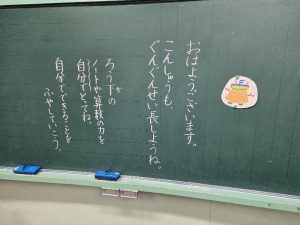 おはようございます。
こんしゅうも、
ぐんぐんせい長しようね。
か
ろう下の
ノートや算数の力を
自分でとってね。
自分でできることを
ふやしていこう。